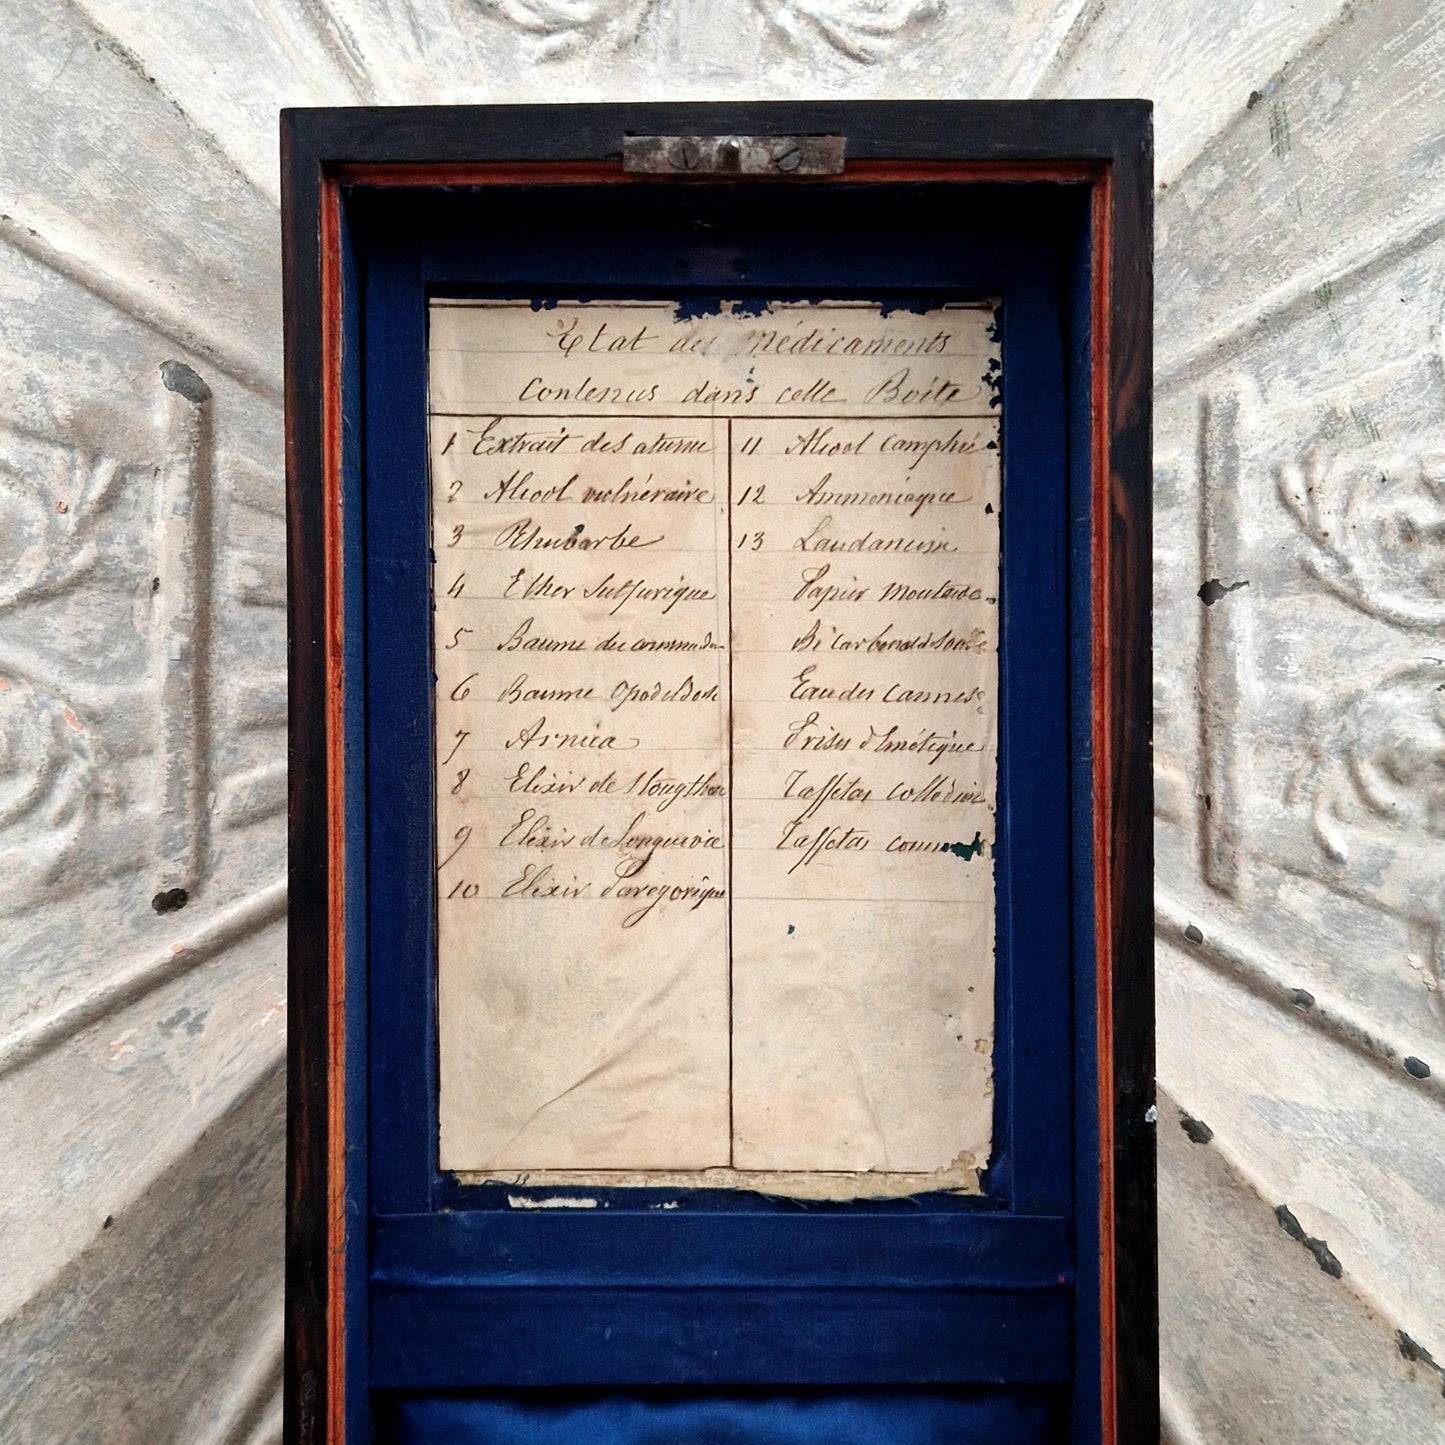 Etat des Médicaments
Contenus dans cette Boite
1 Extrait de Saturne
2 Alcool vulnéraire
3 Rhubarbe
4 Ether Sulfurique
5 Baume du command
6 Baume Opodeldoch
7 Arnica
8 Elixir de Stougthon
9 Elixir de Longuevie
10 Elixir Parégorique
11 Alcool Camphré
12 Ammoniaque
13 Laudanum
Papier Moutarde
Bi Carbonate d Soude
Eau des Carmes
Prises d'Emétique
Taffetas Collodion
Taffetas